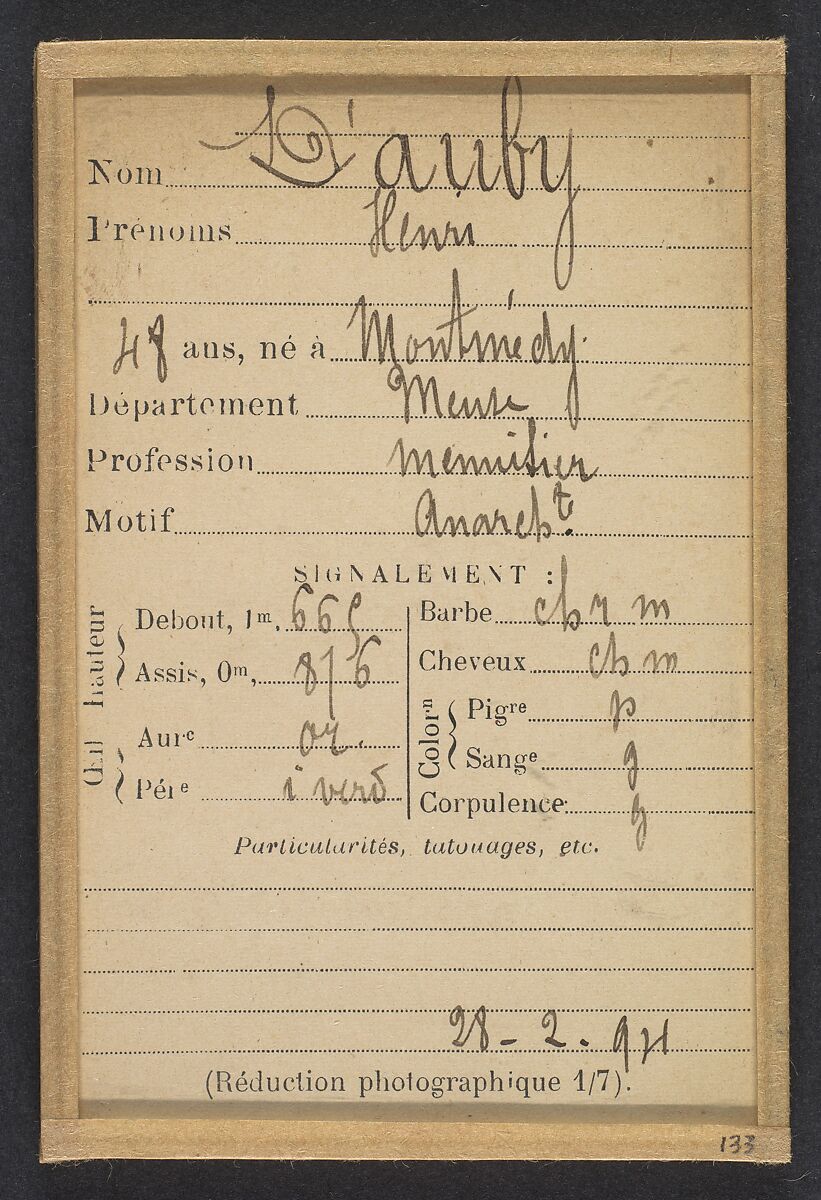 Nom D'auby
Prénoms Henri
48 ans, né à Montmédy.
Département Meuse
Profession menuisier
Motif Anarcht.
SIGNALEMENT :
Œil hauteur
Debout, 1m, 665
Assis, 0m, 876
Aurᵉ or.
Périᵉ i verd
Barbe ch r m
Cheveux ch m
Colorⁿ
Pigʳᵉ p
Sangᵉ g
Corpulence g
Particularités, tatouages, etc.
28 - 2. 94
(Réduction photographique 1/7).
133